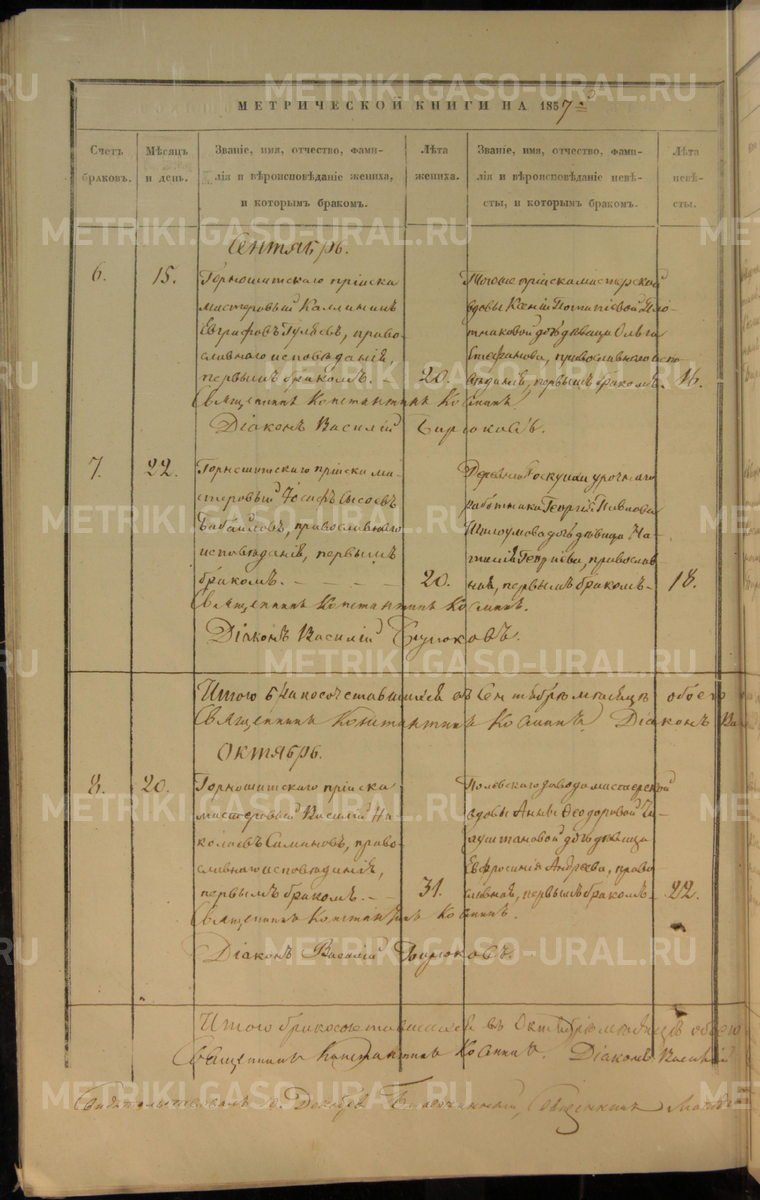 МЕТРИЧЕСКОЙ КНИГИ НА 1857
Счетъ браковъ.
Мѣсяцъ и день.
Званіе, имя, отчество, фами-
лія и вѣроисповѣданіе жениха,
и которымъ бракомъ.
Лѣта жениха.
Званіе, имя, отчество, фами-
лія и вѣроисповѣданіе невѣ-
сты, и которымъ бракомъ.
Лѣта невѣ-
сты.
Сентябрь.
6.
15.
Горношитскаго пріиска
мастеровый Каллиникъ
Евграфовъ Гуляевъ, право-
славнаго исповѣданія,
первымъ бракомъ.
20.
пріиска мастерской
вдовы Ксеніи Потапіевой Пло-
тниковой дочь дѣвица Ольга
Стефанова, православнаго испо-
вѣданія, первымъ бракомъ.
16.
Священникъ Константинъ
Діаконъ Василій Бирюковъ.
7.
22.
Горношитскаго пріиска ма-
стеровый Іосифъ Сысоевъ
православнаго
исповѣданія, первымъ
бракомъ.
20.
Деревни урочнаго
работника Георгія Павлова
Шалоумова дочь дѣвица На-
талія Георгіева, православ-
ная, первымъ бракомъ
18.
Священникъ Константинъ
Діаконъ Василій Бирюковъ.
Итого въ Сентябрѣ мѣсяцѣ обоего
Священникъ Константинъ Діаконъ Ва
Октябрь.
8.
20.
Горношитскаго пріиска
мастеровый Василій Ни-
колаевъ Симановъ, право-
славнаго исповѣданія,
первымъ бракомъ.
31.
Полевскаго завода мастерской
вдовы Анны Ѳеодоровой
дочь дѣвица
Евфросинія Андреева, право-
славная, первымъ бракомъ
22.
Священникъ Константинъ
Діаконъ Василій Бирюковъ.
Итого бракосочетавшихся въ Октябрѣ мѣсяцѣ обоего
Священникъ Константинъ Діаконъ Василій
Благочинный, Священникъ
METRIKI.GASO-URAL.RU